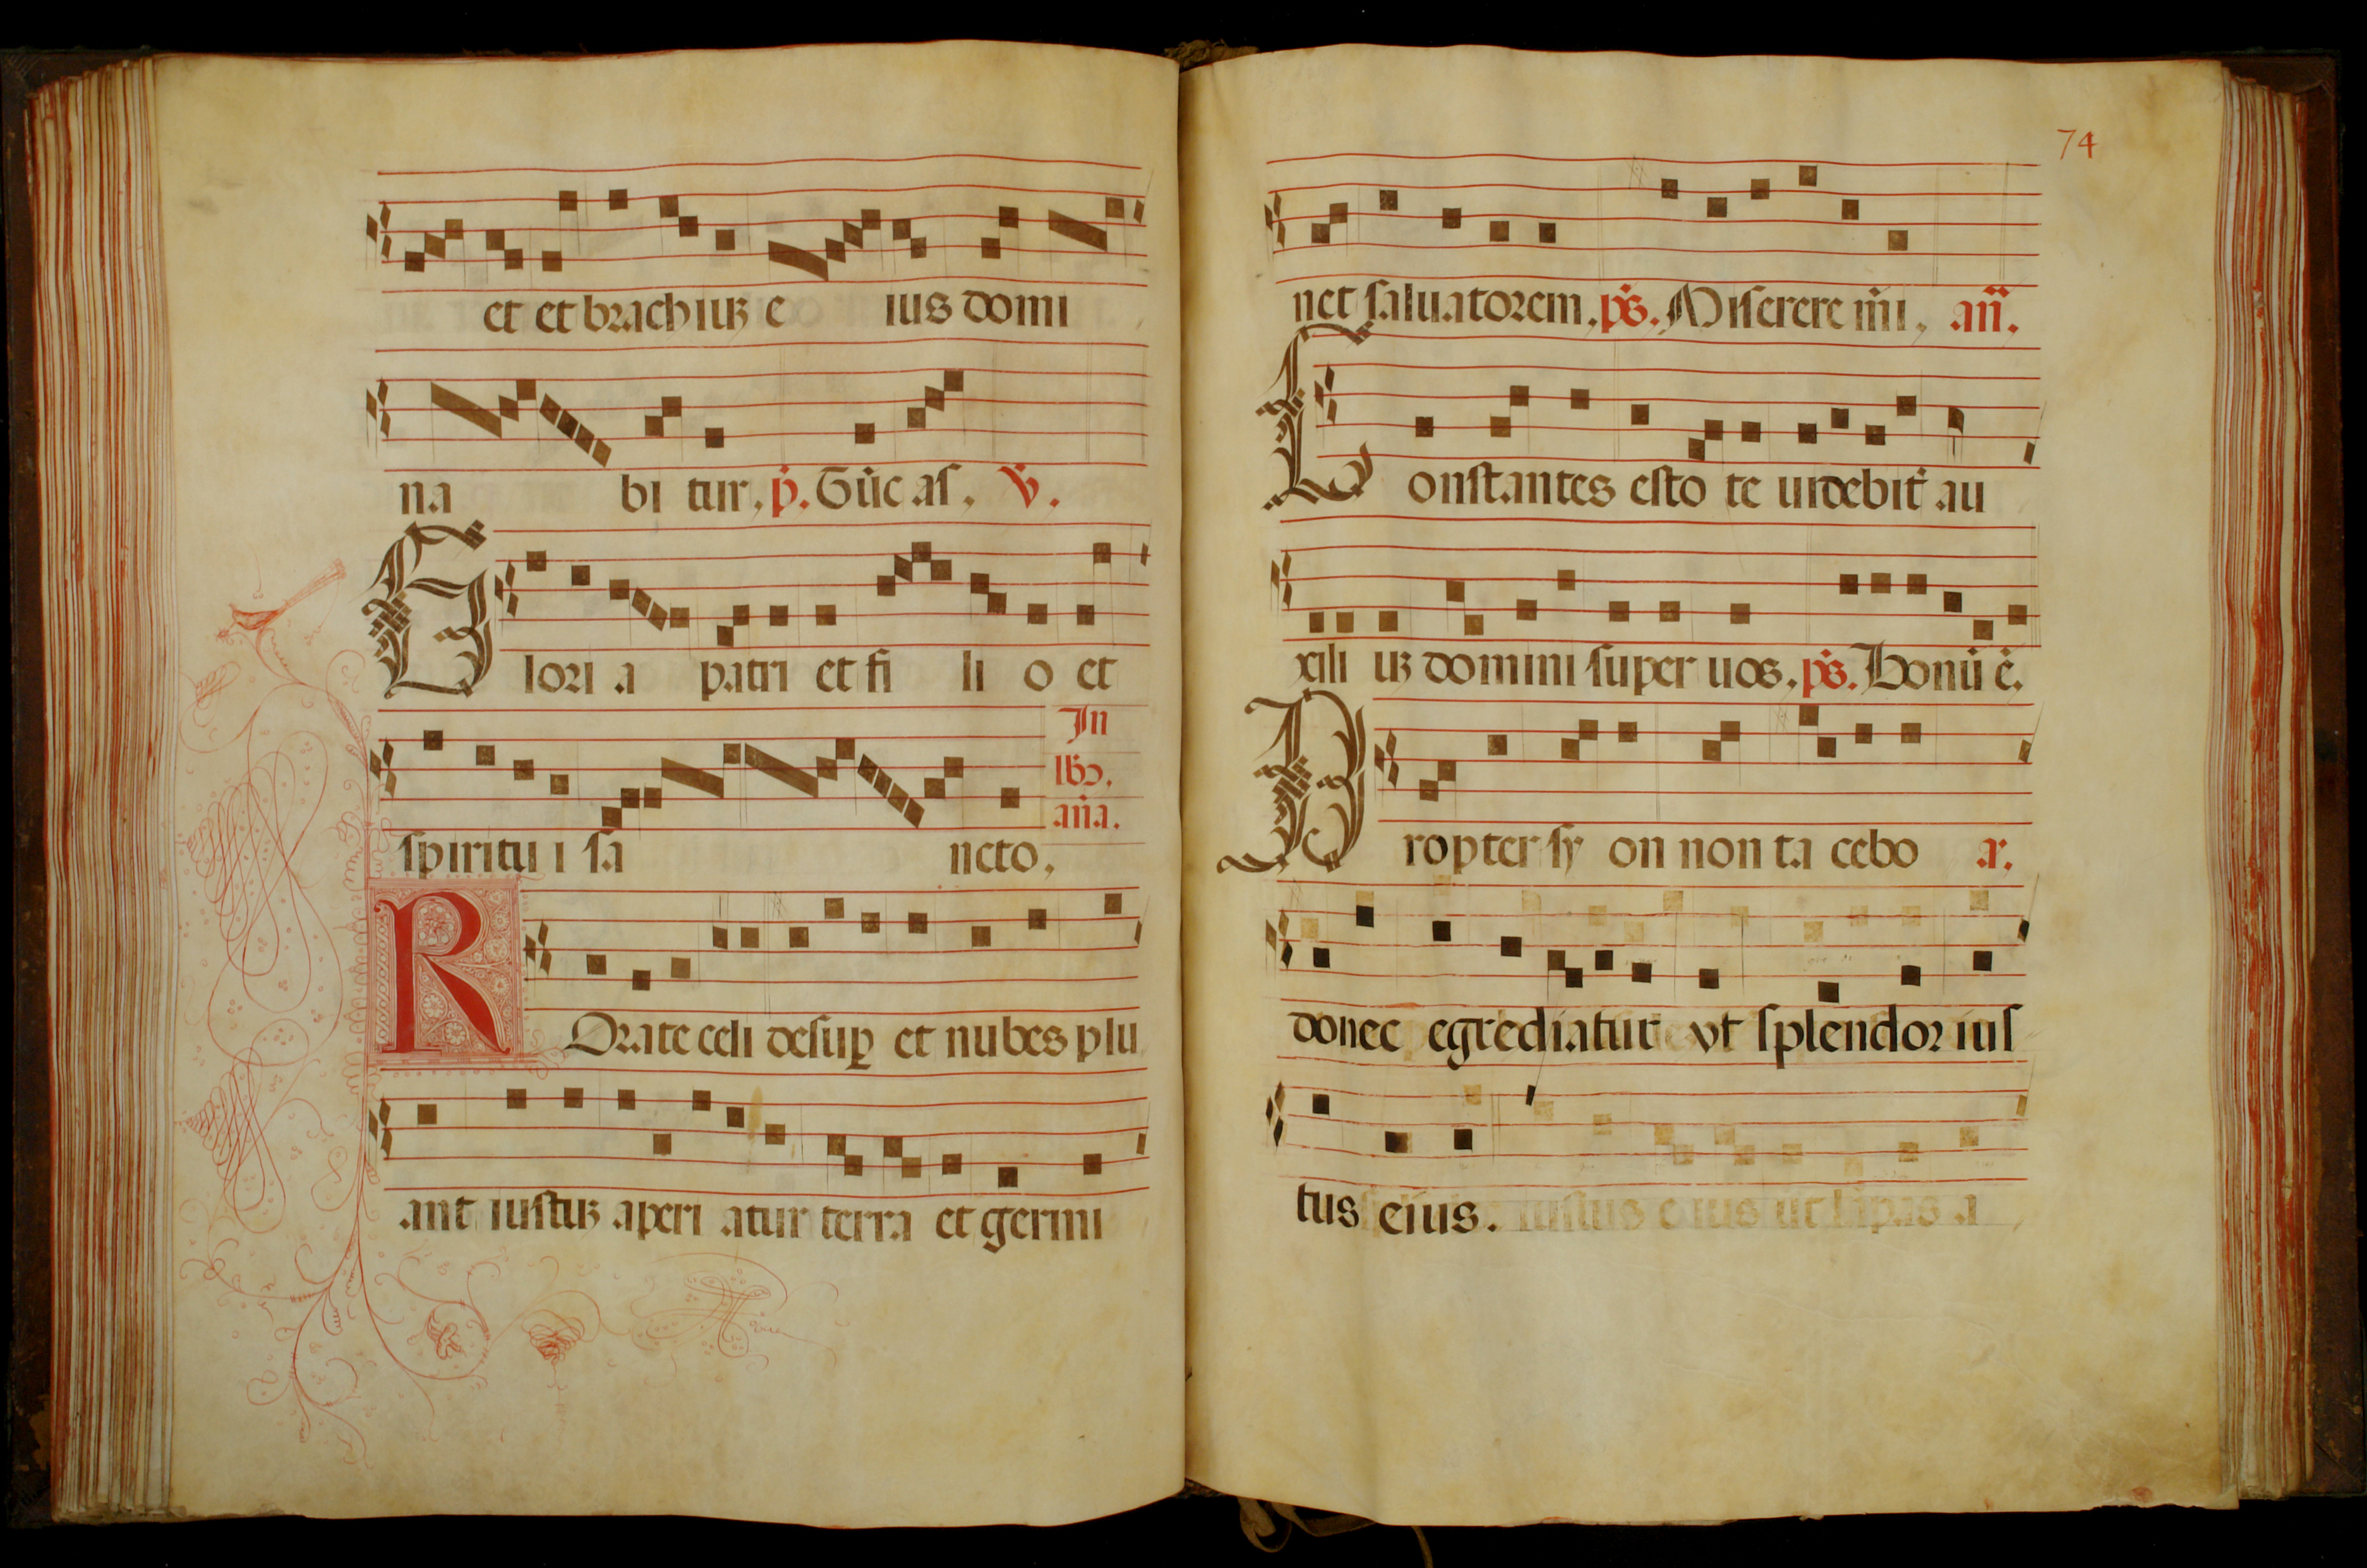 et et brachiuʒ e ius domi
na bi tur, p̄. Gūc as, V̄.
Glori a patri et fi li o et
In
lb̄z.
aña.
spiritu i sa ncto,
ROrate celi desuꝑ et nubes plu
ant iustuʒ aperi atur terra et germi
74
net saluatorem, p̄s. Miserere m̄i, añ.
Constantes esto te uidebit̄ au
xili uʒ domini super uos, p̄s. Bonū ē.
Propter sy on non ta cebo a.
donec egrediatur vt splendor ius
tus eius. iustus e ius ut lāpas a